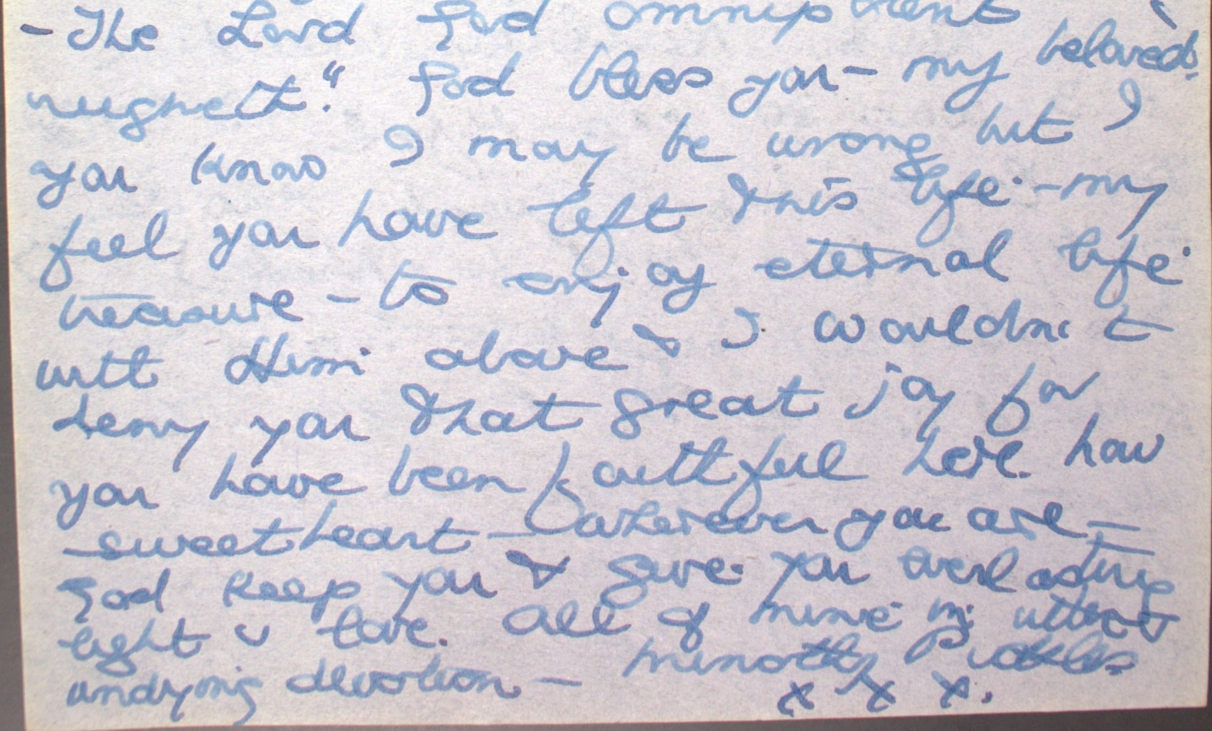 - The Lord God omnipotent
reigneth." God bless you - my beloved.
you know I may be wrong but I
feel you have left this life - my
treasure - to enjoy eternal life
with Him above & I wouldn't
deny you that great joy for
you have been faithful here. how
sweetheart - wherever you are -
God keep you & give you everlasting
light & love. All of mine in utter &
undying devotion -
x x x.